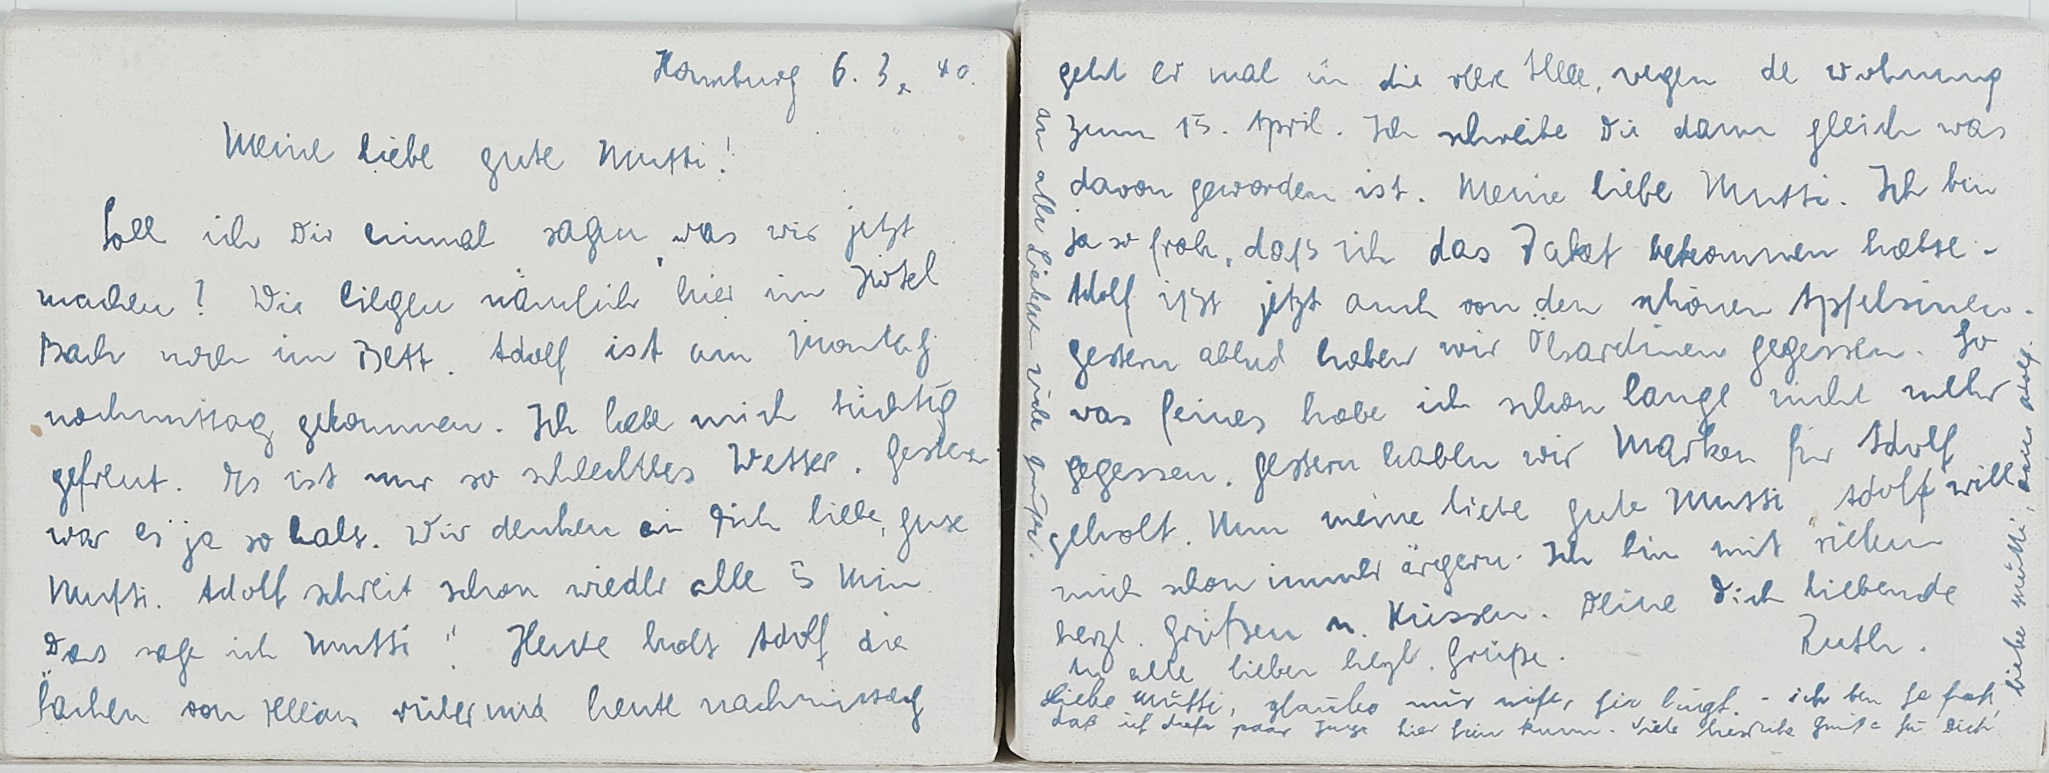 Hamburg 6. 3. 40.
Meine liebe gute Mutti!
Soll ich Dir einmal sagen, was wir jetzt
machen? Wir liegen nämlich hier im Hotel
Bach noch im Bett. Adolf ist am Montag
nachmittag gekommen. Ich habe mich tüchtig
gefreut. Es ist nur so schlechtes Wetter. Gestern
war es ja so kalt. Wir denken an Dich liebe, gute
Mutti. Adolf schreit schon wieder alle 5 Min
"Das sage ich Mutti!" Heute holt Adolf die
Sachen von rüber und heute nachmittag
geht er mal in die wegen de Wohnung
zum 15. April. Ich schreibe Dir dann gleich was
davon geworden ist. Meine liebe Mutti. Ich bin
ja so froh, daß ich das Paket bekommen habe.-
Adolf ißt jetzt auch von den schönen Apfelsinen.
gestern abend haben wir Ölsardinen gegessen. So
was feines habe ich schon lange nicht mehr
gegessen. Gestern haben wir Marken für Adolf
geholt. Nun meine liebe gute Mutti Adolf will
mich schon immer ärgern. Ich bin mit vielen
herzl. Grüßen u. Küssen. Deine Dich liebende
Ruth.
An alle lieben herzl. Grüße.
Liebe Mutti, glaube nur nicht, sie lügt. - ich bin ja froh,
daß ich diese paar Tage hier sein kann. Viele herzliche Grüße für Dich
liebe Mutti, Adolf.
an alle Lieben viele Grüße.